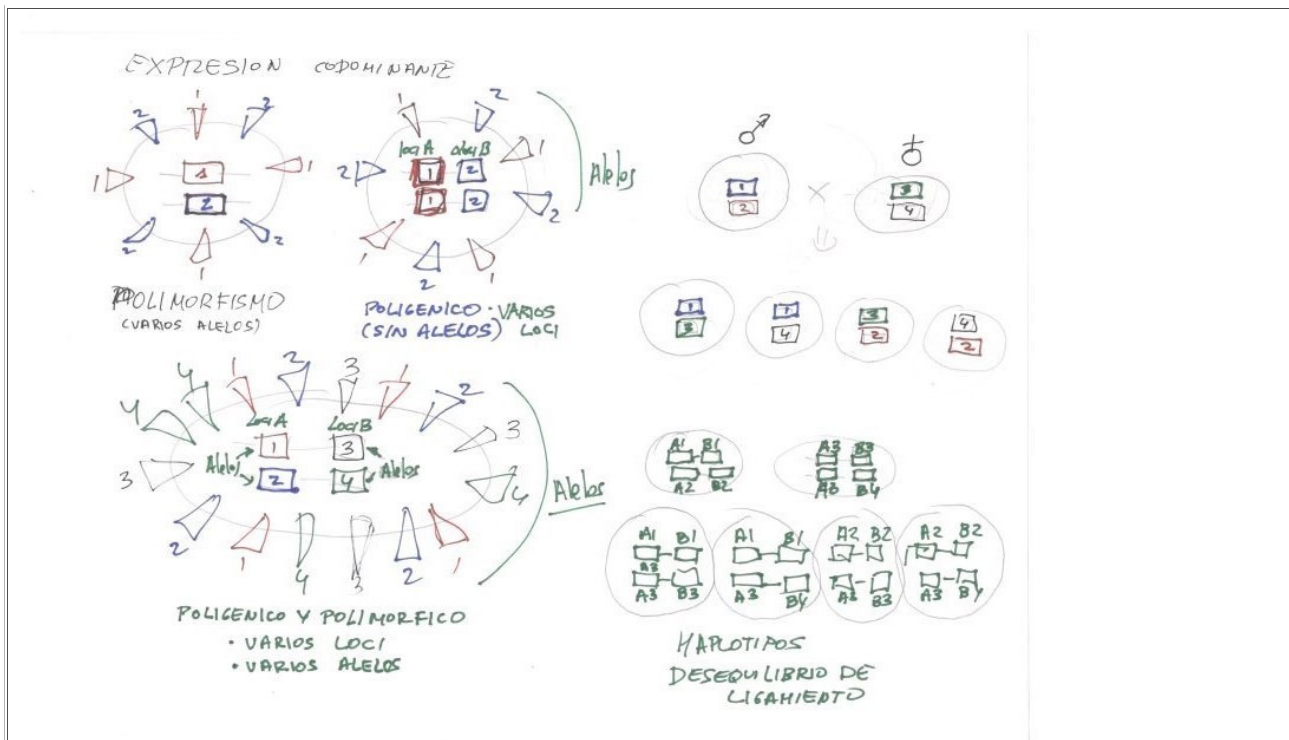 EXPRESION CODOMINANTE
1
2 2
1 1
1
2
2 2
1
POLIMORFISMO
(VARIOS ALELOS)
1 2
loci A loci B
2 1 2 1
1 2 2
1 1
2
Alelos
POLIGENICO · VARIOS
(SIN ALELOS) LOCI
♂ ♀
1 3
2 × 4
1 1 3 4
3 4 2 2
4 4 1 2 3 1 2
Loci A Loci B
1 3 3
Alelos Alelos
3 2 4 4
2 1 4 3 2 1
Alelos
POLIGENICO Y POLIMORFICO
· VARIOS LOCI
· VARIOS ALELOS
A1 B1 A3 B3
A2 B2 A3 B4
A1 B1 A1 B1 A2 B2 A2 B2
A3
A3 B3 A3 B4 A3 B3 A3 B4
HAPLOTIPOS
DESEQUILIBRIO DE
LIGAMIENTO